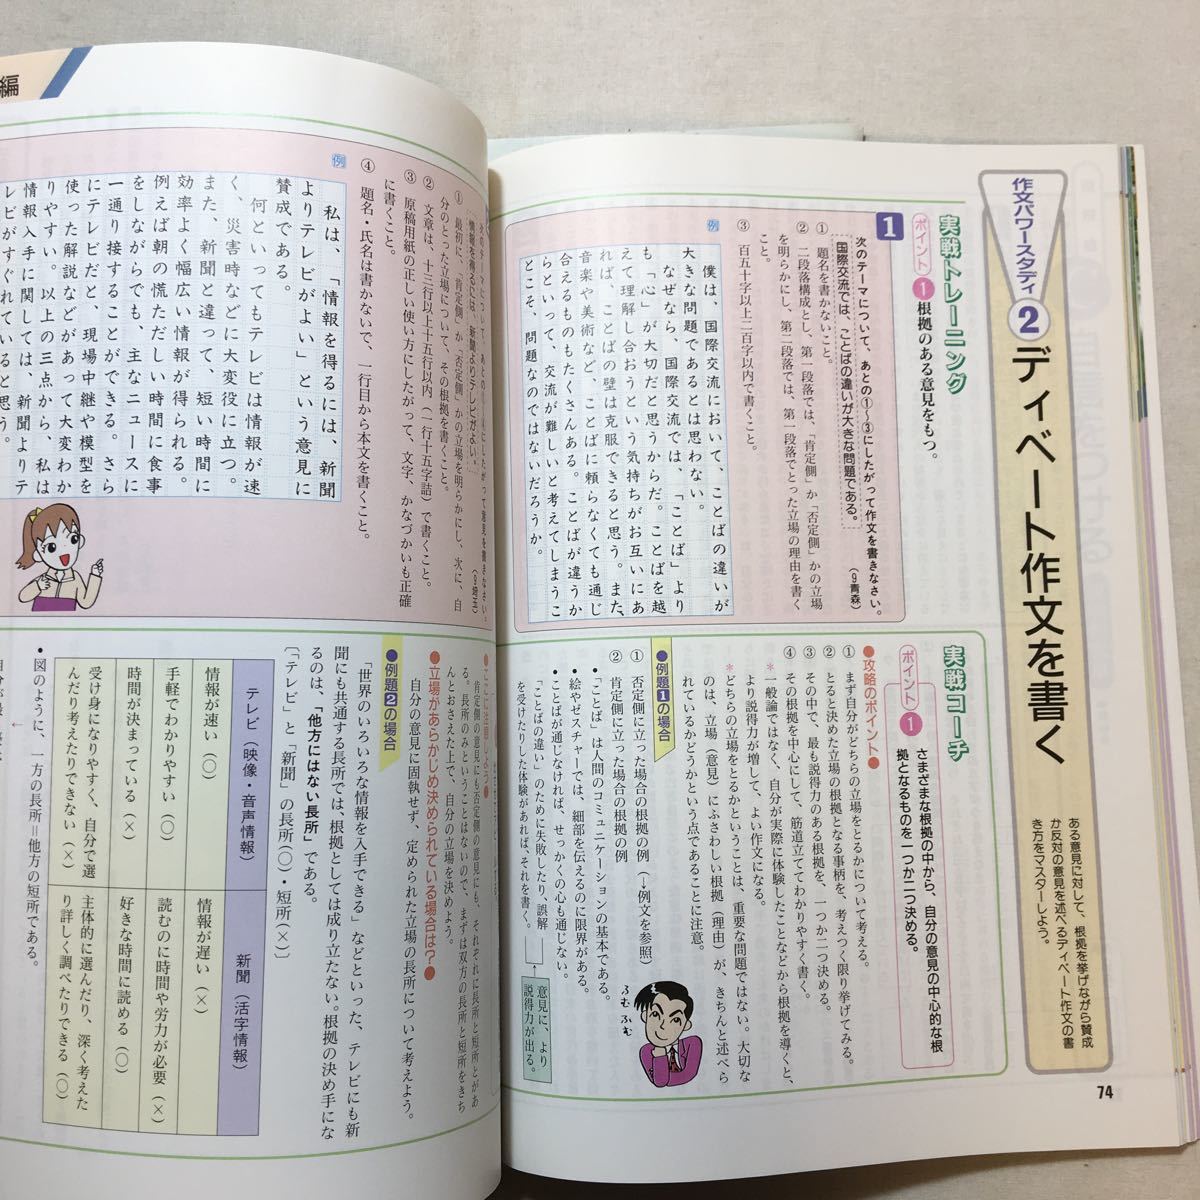 作文パワースタディ
2
ディベート作文を書く
ある意見に対して、根拠を挙げながら賛成
か反対の意見を述べるディベート作文の書
き方をマスターしよう。
実戦トレーニング
ポイント 1 根拠のある意見をもつ。
1
次のテーマについて、あとの①〜③にしたがって作文を書きなさい。
(9青森)
国際交流では、ことばの違いが大きな問題である。
① 題名を書かないこと。
② 二段落構成とし、第一段落では、「肯定側」か「否定側」かの立場
を明らかにし、第二段落では、第一段落でとった立場の理由を書く
こと。
③ 百五十字以上二百字以内で書くこと。
例
僕は、国際交流において、ことばの違いが
大きな問題であるとは思わない。
なぜなら、国際交流では、「ことば」より
も「心」が大切だと思うからだ。ことばを越
えて理解し合おうという気持ちがお互いにあ
れば、ことばの壁は克服できると思う。また、
音楽や美術など、ことばに頼らなくても通じ
合えるものもたくさんある。ことばが違うか
らといって、交流が難しいと考えてしまうこ
とこそ、問題なのではないだろうか。
実戦コーチ
ポイント 1
さまざまな根拠の中から、自分の意見の中心的な根
拠となるものを一つか二つ決める。
●攻略のポイント●
① まず自分がどちらの立場をとるかについて考える。
② とると決めた立場の根拠となる事柄を、考えつく限り挙げてみる。
③ その中で、最も説得力のある根拠を、一つか二つ決める。
④ その根拠を中心にして、筋道立ててわかりやすく書く。
*一般論ではなく、自分が実際に体験したことなどから根拠を導くと、
より説得力が増して、よい作文になる。
*どちらの立場をとるかということは、重要な問題ではない。大切な
のは、立場(意見)にふさわしい根拠(理由)が、きちんと述べら
れているかどうかという点であることに注意。
●例題1の場合
① 否定側に立った場合の根拠の例(→例文を参照)
② 肯定側に立った場合の根拠の例
・「ことば」は人間のコミュニケーションの基本である。
・絵やゼスチャーでは、細部を伝えるのに限界がある。
・ことばが通じなければ、せっかくの心も通じない。
・「ことばの違い」のために失敗したり、誤解
を受けたりした体験があれば、それを書く。
意見に、より
説得力が出る。
ふむふむ
74
編
次のテーマについて、あとの①〜④にしたがって意見を書きなさい。
(9埼玉)
情報を得るには、新聞よりテレビがよい。
① 最初に、「肯定側」か「否定側」かの立場を明らかにし、次に、自
分のとった立場について、その根拠を書くこと。
② 文章は、十三行以上十五行以内(一行十五字詰)で書くこと。
③ 原稿用紙の正しい使い方にしたがって、文字、かなづかいも正確
に書くこと。
④ 題名・氏名は書かないで、一行目から本文を書くこと。
例
私は、「情報を得るには、新聞
よりテレビがよい」という意見に
賛成である。
何といってもテレビは情報が速
く、災害時などに大変役に立つ。
また、新聞と違って、短い時間に
効率よく幅広い情報が得られる。
例えば朝の慌ただしい時間に食事
をしながらでも、主なニュースに
一通り接することができる。さら
にテレビだと、現場中継や模型を
使った解説などがあって大変わか
りやすい。以上の三点から、私は
情報入手に関しては、新聞よりテ
レビがすぐれていると思う。
肯定側の意見にも否定側の意見にも、それぞれに長所と短所とがあ
る。長所のみということはないので、まずは双方の長所と短所をきち
んとおさえた上で、自分の立場を決めよう。
●立場があらかじめ決められている場合は?●
自分の意見に固執せず、定められた立場の長所について考えよう。
●例題2の場合
「世界のいろいろな情報を入手できる」などといった、テレビにも新
聞にも共通する長所では、根拠としては成り立たない。根拠の決め手にな
るのは、「他方にはない長所」である。
〔「テレビ」と「新聞」の長所(○)・短所(×)〕
テレビ(映像・音声情報)
新聞(活字情報)
情報が速い(○)
情報が遅い(×)
手軽でわかりやすい(○)
読むのに時間や労力が必要(×)
時間が決まっている(×)
好きな時間に読める(○)
受け身になりやすく、自分で選
んだり考えたりできない(×)
主体的に選んだり、深く考えた
り詳しく調べたりできる(○)
・図のように、一方の長所=他方の短所である。